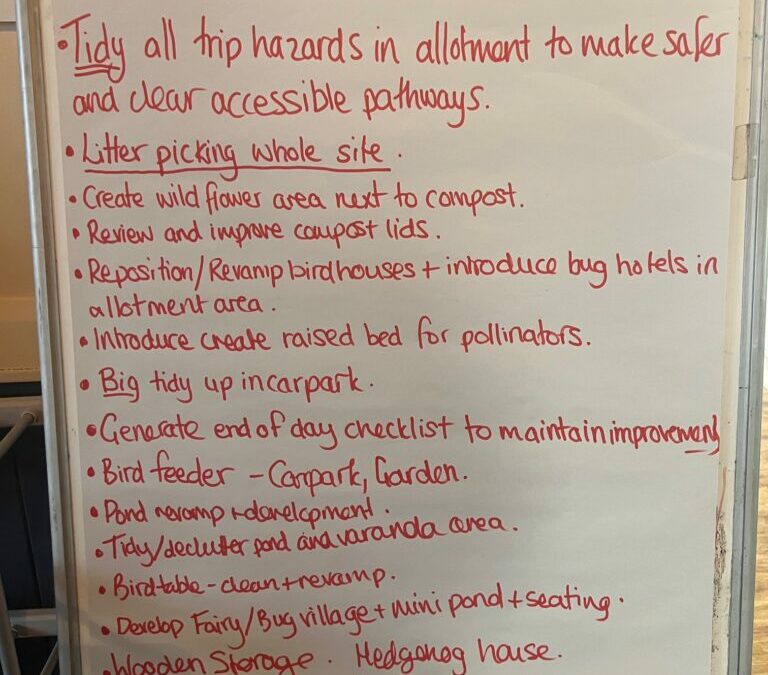 • Tidy all trip hazards in allotment to make safer
and clear accessible pathways.
• Litter picking whole site.
• Create wild flower area next to compost.
• Review and improve compost lids.
• Reposition/Revamp birdhouses + introduce bug hotels in
allotment area.
• Introduce create raised bed for pollinators.
• Big tidy up in carpark.
• Generate end of day checklist to maintain improvement
• Bird feeder - Carpark, Garden.
• Pond revamp + development.
• Tidy/declutter pond and varanda area.
• Bird table - clean + revamp.
• Develop Fairy/Bug village + mini pond + seating.
• Wooden Storage. Hedgehog house.